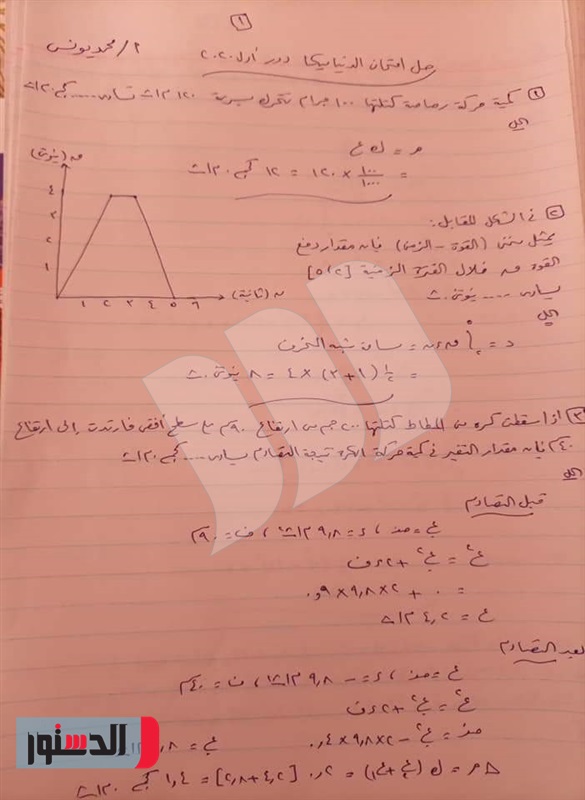 ١
حل امتحان الديناميكا دور أول ٢٠٢٠
أ/ محمد يونس
١ كمية حركة رصاصة كتلتها ١٠٠ جرام تتحرك بسرعة ١٢٠ م/ث تساوى ..... كجم.م/ث
الحل
م = ك ع
= ١٠٠/١٠٠٠ × ١٢٠ = ١٢ كجم.م/ث
٢ فى الشكل المقابل:
يمثل منحنى (القوة - الزمن) فإن مقدار دفع
القوة ق خلال الفترة الزمنية [٢،٥]
يساوى ..... نيوتن.ث
الحل
د = ∫ ق ءن = مساحة شبه المنحرف
= ١/٢ (١+٣) × ٤ = ٨ نيوتن.ث
ق (نيوتن)
٤
٣
٢
١
١ ٢ ٣ ٤ ٥ ٦
ن (ثانية)
٣ اذا سقطت كرة من المطاط كتلتها ٢٠٠ جم من ارتفاع ٩٠ سم على سطح أفقى فارتدت إلى ارتفاع
٤٠ سم فإن مقدار التغير فى كمية حركة الكرة نتيجة التصادم يساوى ..... كجم.م/ث
الحل
قبل التصادم
ع. = صفر ، ء = ٩,٨ م/ث٢ ، ف = ٩٠ سم
ع٢ = ع.٢ + ٢ء ف
= ٠ + ٢×٩,٨×٠,٩
ع = ٤,٢ م/ث
بعد التصادم
ع = صفر ، ء = - ٩,٨ م/ث٢ ، ف = ٤٠ سم
ع٢ = ع.٢ + ٢ء ف
صفر = ع.٢ - ٢×٩,٨×٠,٤
ع. = ٢,٨
Δم = ك (ع + ع) = ٠,٢ [٤,٢+٢,٨] = ١,٤ كجم.م/ث
الدستور